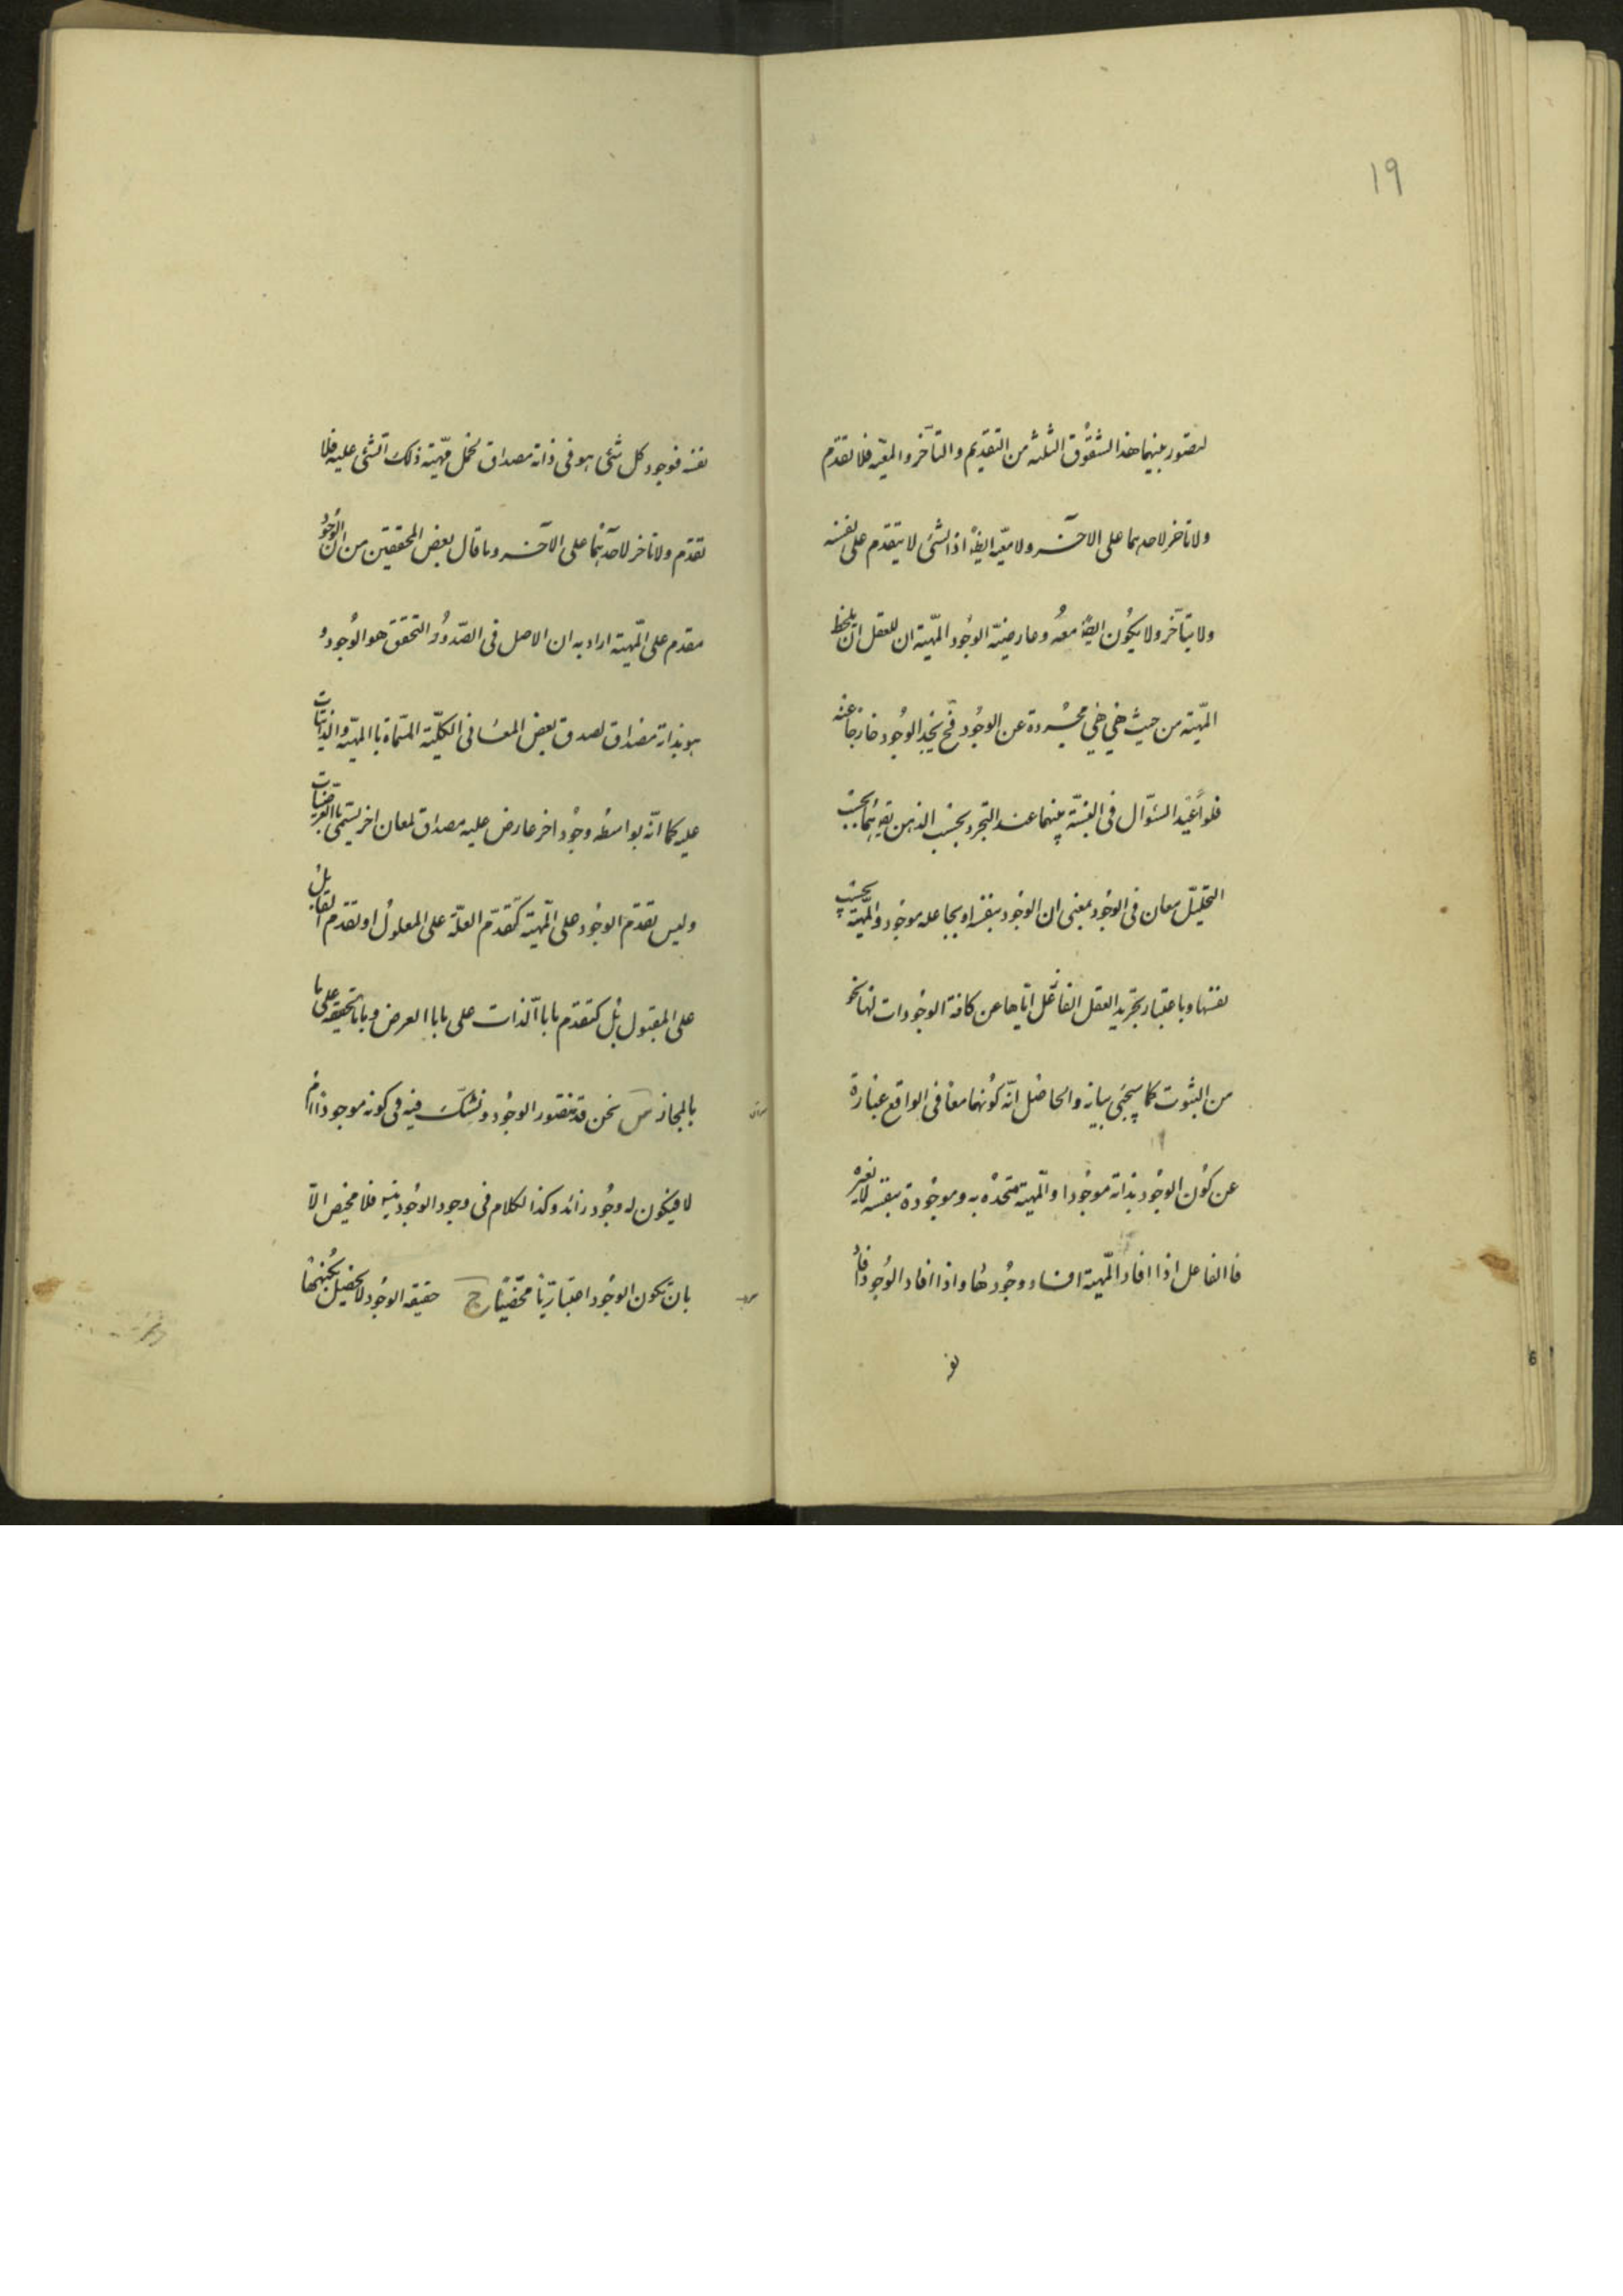 ١٩
ليصور بينهما هذا الشقوق الثلثه من التقديم والتأخر والمعيّه فلا تقدّم
ولا تاخر لاحدهما على الاخر ولا معيّه ايضا اذ الشئ لا يتقدم على نفسه
ولا يتآخر ولا يكون ايضا معه وعارضيّة الوجود المهيّة ان للعقل ان يلحظ
المهيّة من حيث هي هي مجرّدة عن الوجود فح يجد الوجود خارجاً عنه
فلو اعيد السئوال فى النسبّة بينهما عند التجرد بحسب الذهن يق هما بحسب
التحليل معان فى الوجود بمعنى ان الوجود بنفسه او بجاعله موجود والمهيّة بحسب
نفسها وباعتبار تجريد العقل الفاعل ايّاها عن كافة الوجودات لها نحو
من الثبوت كما سيجئ بيانه والحاصل انّه كونهما معا فى الواقع عبارة
عن كون الوجود بذاته موجودا والمهية متحده به وموجودة بنفسه لا بغيره
فا الفاعل اذا افاد المهيّة افاد وجودها واذا افاد الوجود افاد
نفسه فوجود كل شئ هو فى ذاته مصداق لحمل مهيّة ذلك الشئ عليه فلا
تقدّم ولا تاخر لاحدهما على الآخر وما قال بعض المحققين من ان الوجود
مقدم على المهيّة اراد به ان الاصل فى الصّدور والتحقق هو الوجود و
هو بذاته مصداق لصدق بعض المعانى الكليّة المسمّاة با المهيّة والذاتيات
عليه كما انّه بواسطه وجود اخر عارض عليه مصداق لمعان اخر يسمّى با العرضيات
وليس تقدّم الوجود على المهيّة كتقدّم العلّة على المعلول او تقدّم القابل
على المقبول بل كتقدم ما با الّذات على ما با العرض وما با الحقيقه على ما
بالمجاز س نحن قد نتصور الوجود ونشكّ فيه فى كونه موجودا ام
لا فيكون له وجود زائد وكذا الكلام فى وجود الوجود فلا محيص الاّ
بان يكون الوجود اعتباريّا محضيّا ج حقيقه الوجود لا يحصل بكنهها